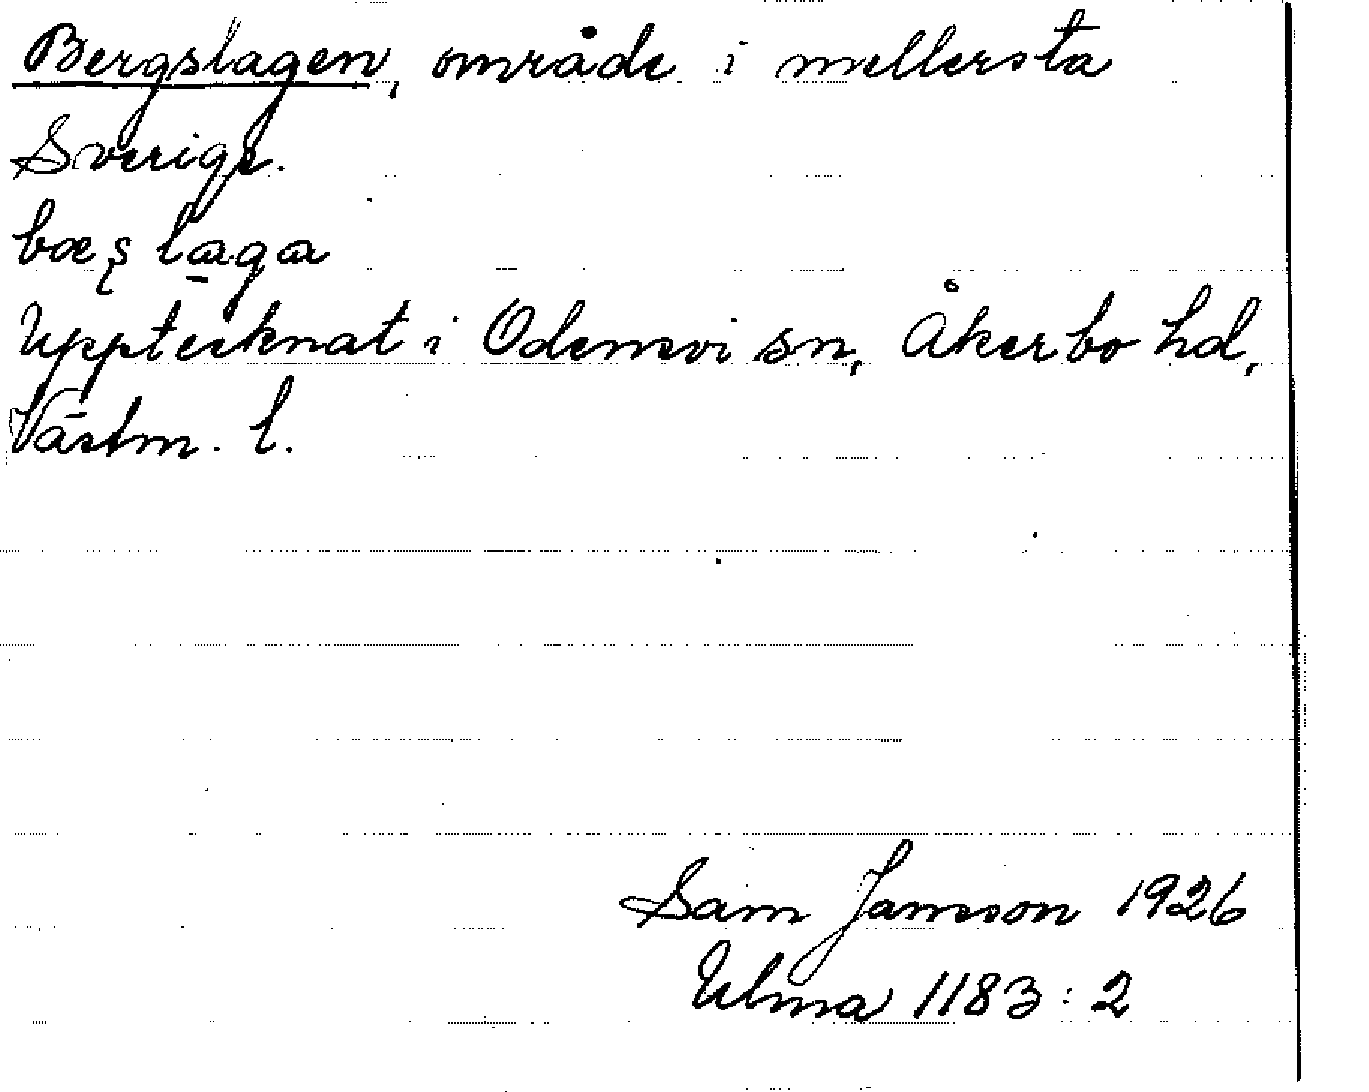 Bergslagen, område i mellersta
Sverige.
bœʂ laga
Upptecknat i Odensvi sn, Åkerbo hd,
Västm. l.
Sam Jansson 1926
Ulma 1183:2